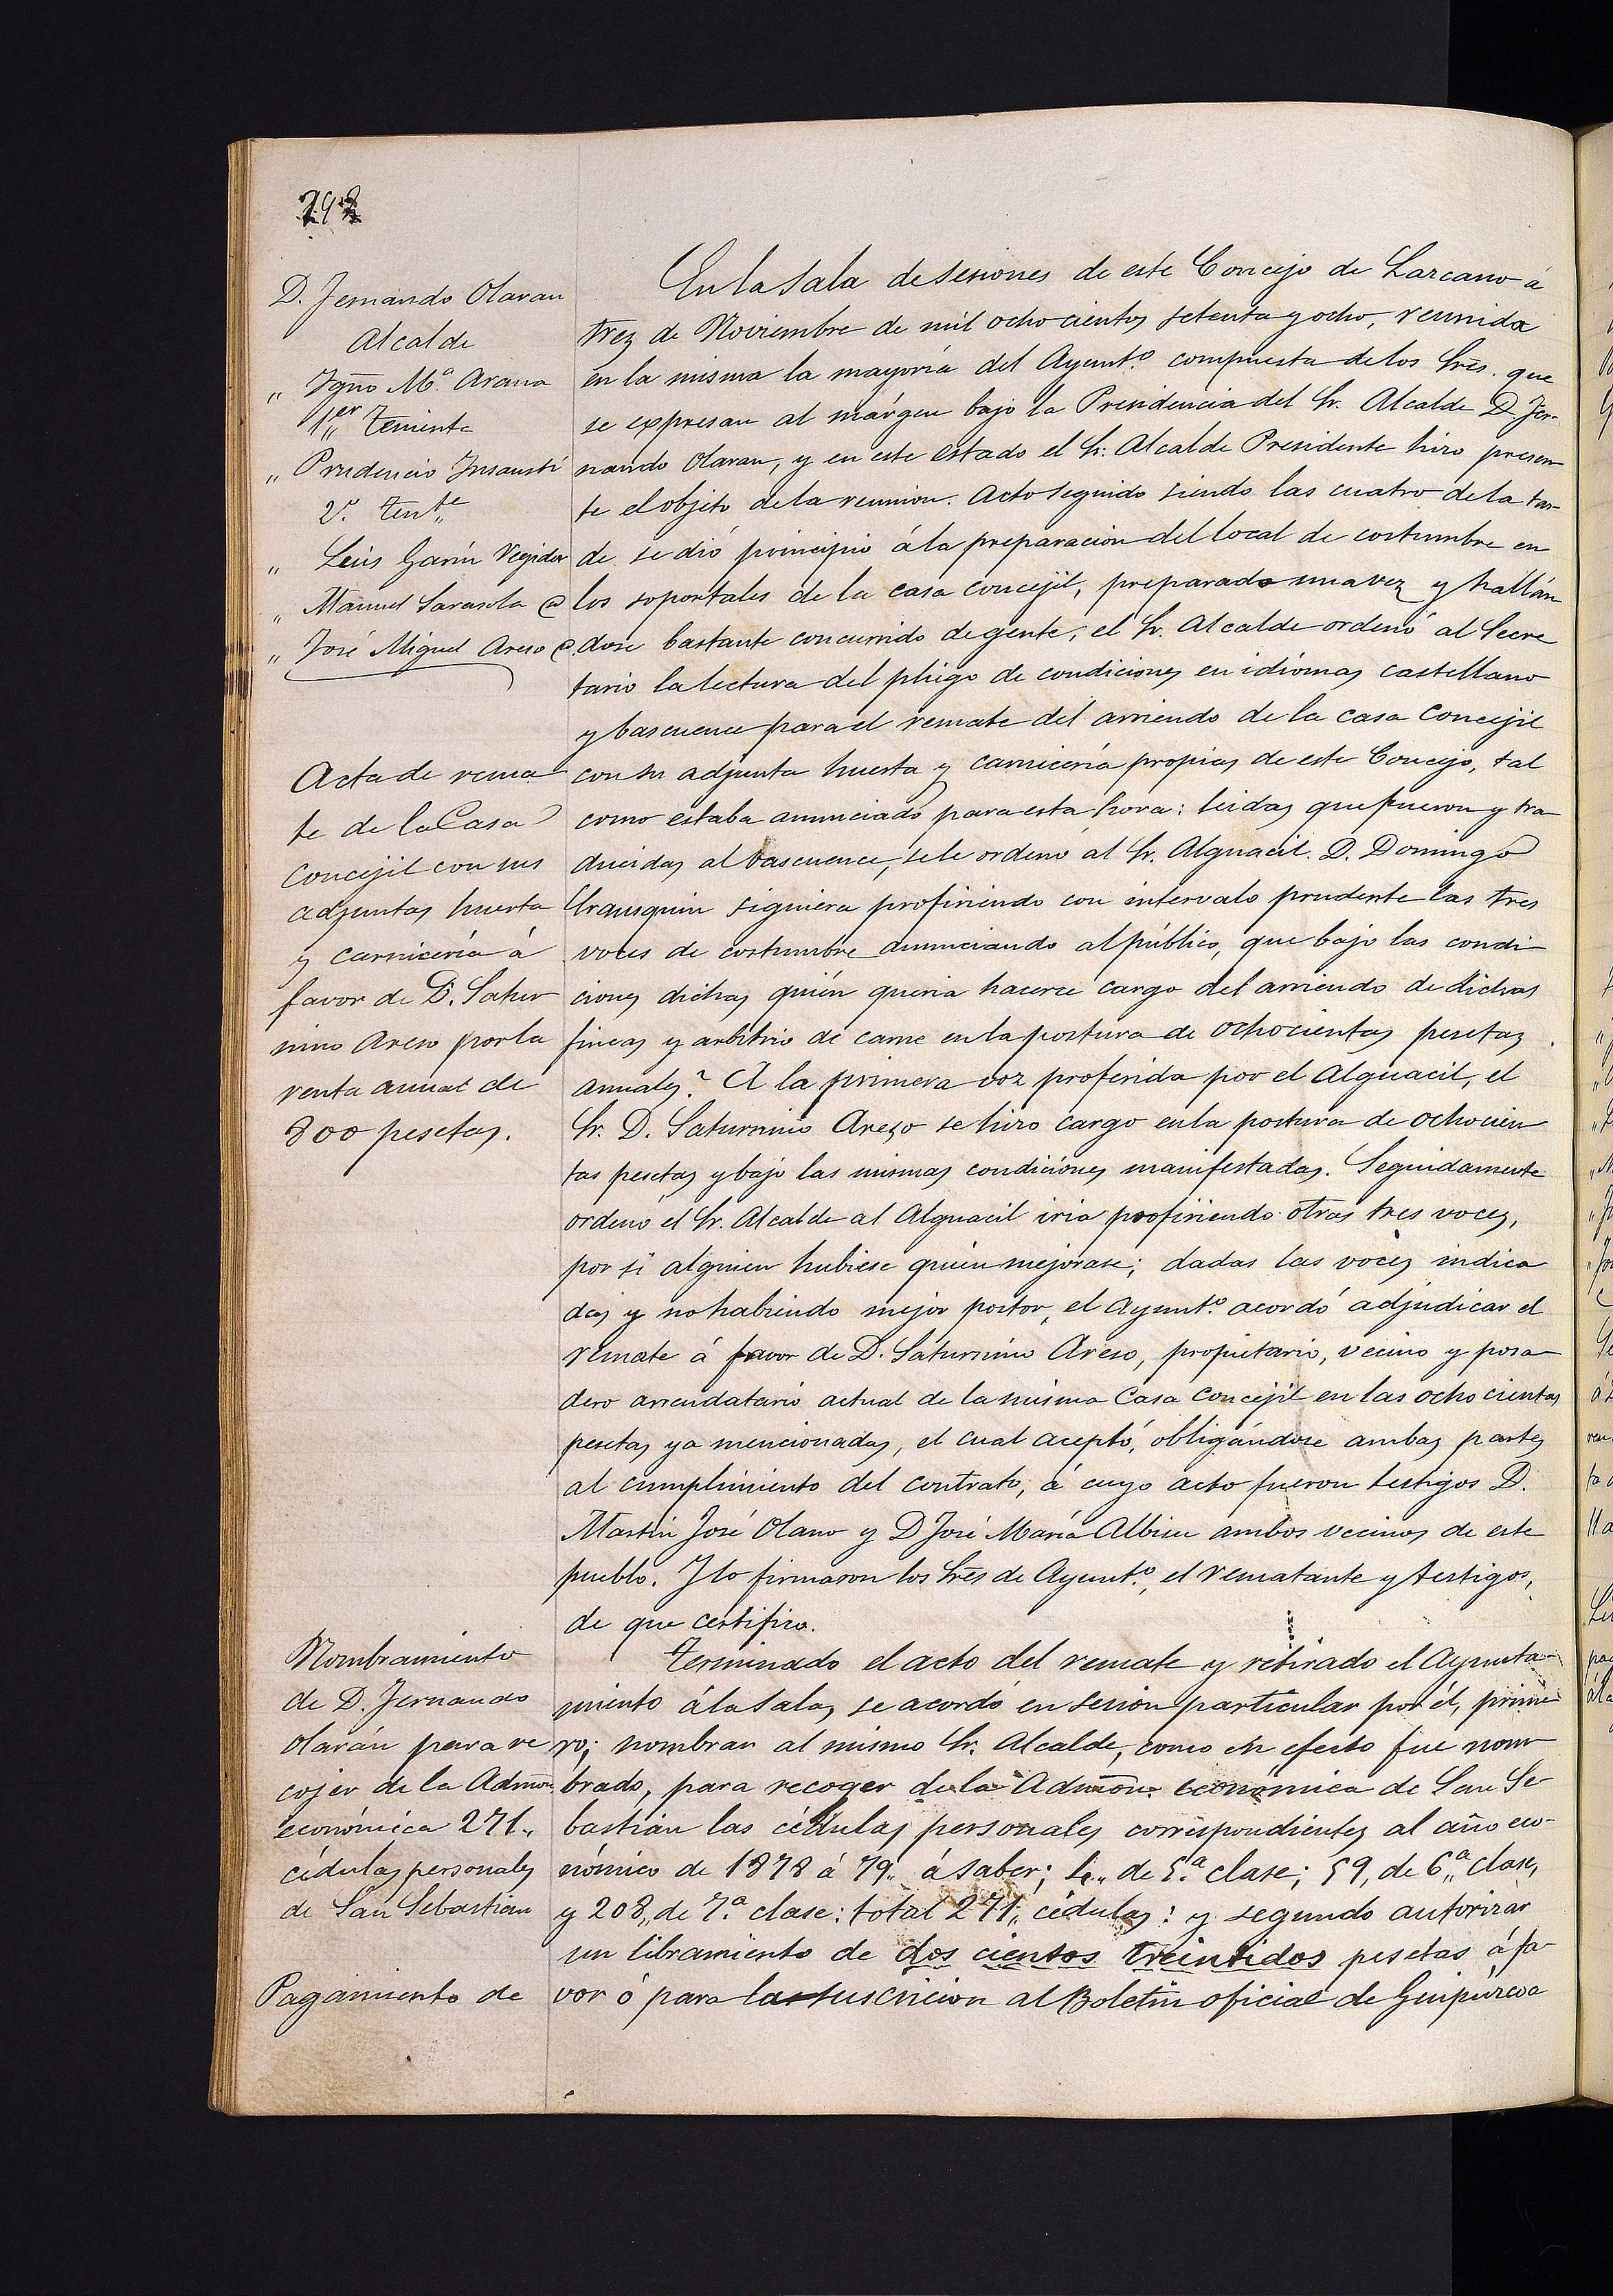 D. Fernando Olaran
Alcalde
„ Ygño Mª. Arana
1er Teniente
„ Prudencio Insausti
2º. Tente
„ Luis Garin Regidor
„ Manuel Sarasola @
„ José Miguel Areso @
Acta de rema
te de la Casa
Concejil con sus
adjuntas huerta
y carniceria á
favor de D. Satur
nino Areso por la
renta anual de
800 pesetas.
Nombramiento
de D. Fernando
Olarán para re
cojer de la Admon.
económica 271„
cédulas personales
de San Sebastian
Pagamiento de
En la Sala de sesiones de este Concejo de Lazcano á
trez de Noviembre de mil ochocientos setenta y ocho, reunida
en la misma la mayoría del Ayuntº. compuesta de los Sres. que
se expresan al márgen bajo la Presidencia del Sr. Alcalde D. Fer-
nando Olaran, y en este estado el Sr. Alcalde Presidente hizo presen
te el objeto de la reunion. Acto seguido siendo las cuatro de la tar-
de se dió principio á la preparacion del local de costumbre en
los soportales de la casa concejil, preparado una vez y hallán
dose bastante concurrido de gente, el Sr. Alcalde ordenó al Secre
tario la lectura del pliego de condiciones en idiómas castellano
y bascuence para el remate del arriendo de la casa Concejil
con su adjunta huerta y carnicería propias de este Concejo, tal
como estaba anunciado para esta hora: leidas que fueron y tra
ducidas al bascuence, se le ordenó al Sr. Alguacil. D. Domingo
Urausquin siguiera profiriendo con intervalo prudente las tres
voces de costumbre anunciando al público, que bajo las condi
ciones dichas quién queria hacerce cargo del arriendo de dichas
fincas y arbitrio de carne en la postura de ochocientas pesetas
anuales? A la primera voz proferida por el Alguacil, el
Sr. D. Saturnino Areso se hizo cargo en la postura de ochocien
tas pesetas y bajo las mismas condiciónes manifestadas. Seguidamente
ordenó el Sr. Alcalde al Alguacil iria profiriendo otras tres voces,
por si alguien hubiese quien mejorase; dadas las voces indica
das y no habiendo mejor postor, el Ayuntº. acordó adjudicar el
remate á favor de D. Saturnino Areso, propietario, vecino y posa
dero arrendatario actual de la misma Casa Concejil en las ochocientas
pesetas ya mencionadas, el cual aceptó, obligándose ambas partes
al cumplimiento del contrato, á cuyo acto fueron testigos D.
Martin José Olano y D José María Albisu ambos vecinos de este
pueblo. Y lo firmaron los Sres de Ayuntº., el rematante y testigos,
de que certifico.
Terminado el acto del remate y retirado el Ayunta-
miento á la sala, se acordó en sesion particular por él, prime
ro; nombrar al mismo Sr. Alcalde, como en efecto fue nom
brado, para recoger de la Admon. económica de San Se
bastián las cédulas personales correspondientes al año eco-
nómico de 1878 á 79„ á saber; 4„ de 5.ª clase; 59, de 6.ª clase,
y 208„ de 7.ª clase: total 271„ cédulas: y segundo autorizar
un libramiento de dos cientos treintidos pesetas á fa-
vor ó para la suscricion al Boletin oficial de Guipúzcoa